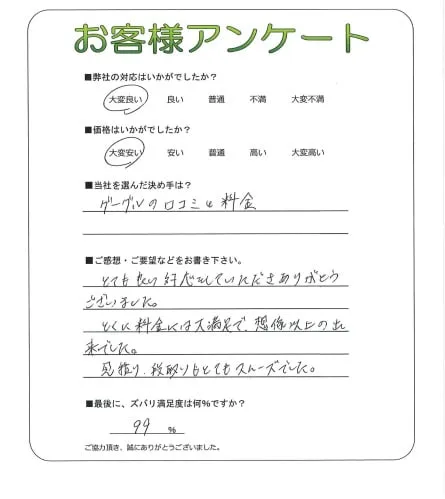 お客様アンケート
■弊社の対応はいかがでしたか？
大変良い 良い 普通 不満 大変不満
■価格はいかがでしたか？
大変安い 安い 普通 高い 大変高い
■当社を選んだ決め手は？
グーグルの口コミと料金
■ご感想・ご要望などをお書き下さい。
とても良い対応していただきありがとう
ございました。
とくに料金には大満足で、想像以上の出
来でした。
見積り、段取りもとてもスムーズでした。
■最後に、ズバリ満足度は何％ですか？
99 %
ご協力頂き、誠にありがとうございました。